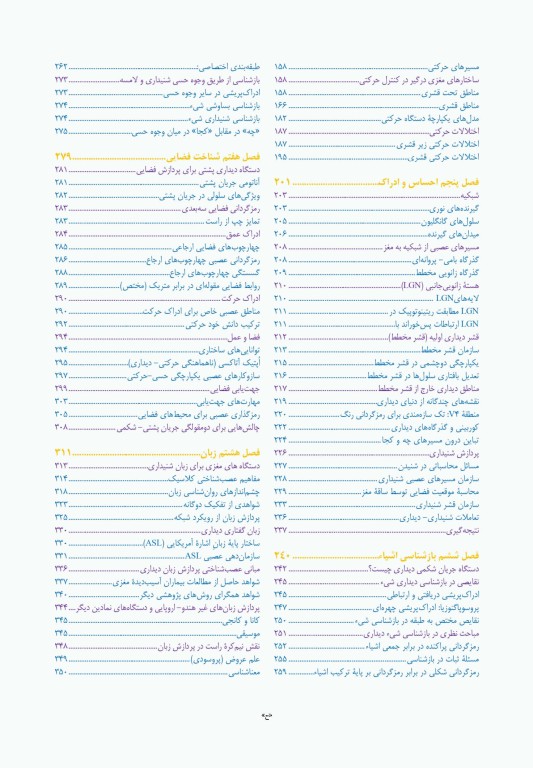 مسیرهای حرکتی ۱۵۸
ساختارهای مغزی درگیر در کنترل حرکتی ۱۵۸
مناطق تحت قشری ۱۵۸
مناطق قشری ۱۶۶
مدل‌های یکپارچهٔ دستگاه حرکتی ۱۸۲
اختلالات حرکتی ۱۸۷
اختلالات حرکتی زیر قشری ۱۸۷
اختلالات حرکتی قشری ۱۹۵
فصل پنجم احساس و ادراک ۲۰۱
شبکیه ۲۰۳
گیرنده‌های نوری ۲۰۳
سلول‌های گانگلیون ۲۰۵
میدان‌های گیرنده ۲۰۶
مسیرهای عصبی از شبکیه به مغز ۲۰۸
گذرگاه بامی- پروانه‌ای ۲۰۸
گذرگاه زانویی مخطط ۲۰۹
هستهٔ زانویی‌جانبی (LGN) ۲۱۰
لایه‌های LGN ۲۱۰
LGN مطابقت ریتینوتوپیک در ۲۱۱
LGN ارتباطات پس‌خوراند با ۲۱۱
قشر دیداری اولیه (قشر مخطط) ۲۱۲
سازمان قشر مخطط ۲۱۳
یکپارچگی دوچشمی در قشر مخطط ۲۱۵
تعدیل بافتاری سلول‌ها در قشر مخطط ۲۱۶
مناطق دیداری خارج از قشر مخطط ۲۱۷
نقشه‌های چندگانه از دنیای دیداری ۲۱۹
منطقهٔ V۴: تک سازه‌مندی برای رمزگردانی رنگ ۲۲۰
کوربینی و گذرگاه‌های دیداری ۲۲۲
تباین درون مسیرهای چه و کجا ۲۲۴
پردازش شنیداری ۲۲۶
مسائل محاسباتی در شنیدن ۲۲۷
سازمان مسیرهای عصبی شنیداری ۲۲۸
محاسبهٔ موقعیت فضایی توسط ساقهٔ مغز ۲۲۹
سازمان قشر شنیداری ۲۳۳
تعاملات شنیداری- دیداری ۲۳۶
نتیجه‌گیری ۲۳۷
فصل ششم بازشناسی اشیاء ۲۴۰
دستگاه جریان شکمی دیداری چیست؟ ۲۴۲
نقایصی در بازشناسی دیداری شیء ۲۴۵
ادراک‌پریشی دریافتی و ارتباطی ۲۴۵
پروسوپاگنوزیا: ادراک‌پریشی چهره‌ای ۲۴۷
نقایص مختص به طبقه در بازشناسی شیء ۲۵۰
مباحث نظری در بازشناسی شیء دیداری ۲۵۱
رمزگردانی پراکنده در برابر جمعی اشیاء ۲۵۲
مسئلهٔ ثبات در بازشناسی ۲۵۵
رمزگردانی شکلی در برابر رمزگردانی بر پایهٔ ترکیب اشیاء ۲۵۹
طبقه‌بندی اختصاصی: ۲۶۲
بازشناسی از طریق وجوه حسی شنیداری و لامسه ۲۷۳
ادراک‌پریشی در سایر وجوه حسی ۲۷۳
بازشناسی بساوشی شیء ۲۷۴
بازشناسی شنیداری شیء ۲۷۴
«چه» در مقابل «کجا» در میان وجوه حسی ۲۷۵
فصل هفتم شناخت فضایی ۲۷۹
دستگاه دیداری پشتی برای پردازش فضایی ۲۸۱
آناتومی جریان پشتی ۲۸۱
ویژگی‌های سلولی در جریان پشتی ۲۸۲
رمزگردانی فضایی سه‌بعدی ۲۸۳
تمایز چپ از راست ۲۸۳
ادراک عمق ۲۸۴
چهارچوب‌های فضایی ارجاعی ۲۸۵
رمزگردانی عصبی چهارچوب‌های ارجاع ۲۸۶
گسستگی چهارچوب‌های ارجاع ۲۸۸
روابط فضایی مقوله‌ای در برابر متریک (مختص) ۲۸۹
ادراک حرکت ۲۹۰
مناطق عصبی خاص برای ادراک حرکت ۲۹۰
ترکیب دانش خود حرکتی ۲۹۲
فضا و عمل ۲۹۴
توانایی‌های ساختاری ۲۹۴
اُپتیک آتاکسی (ناهماهنگی حرکتی- دیداری) ۲۹۵
سازوکارهای عصبی یکپارچگی حسی-حرکتی ۲۹۷
جهت‌یابی فضایی ۲۹۹
مهارت‌های جهت‌یابی ۳۰۳
رمزگذاری عصبی برای محیط‌های فضایی ۳۰۵
چالش‌هایی برای دومقولگی جریان پشتی- شکمی ۳۰۸
فصل هشتم زبان ۳۱۱
دستگاه های مغزی برای زبان شنیداری ۳۱۳
مفاهیم عصب‌شناختی کلاسیک ۳۱۴
چشم‌اندازهای روان‌شناسی زبان ۳۱۸
شواهدی از تفکیک دوگانه ۳۲۳
پردازش زبان از رویکرد شبکه ۳۲۵
زبان گفتاری دیداری ۳۳۰
ساختار پایهٔ زبان اشارهٔ آمریکایی (ASL) ۳۳۰
سازمان‌دهی عصبی ASL ۳۳۱
مبانی عصب‌شناختی پردازش زبان دیداری ۳۳۶
شواهد حاصل از مطالعات بیماران آسیب‌دیدهٔ مغزی ۳۳۷
شواهد همگرای روش‌های پژوهشی دیگر ۳۴۰
پردازش زبان‌های غیر هندو- اروپایی و دستگاه‌های نمادین دیگر ۳۴۴
کانا و کانجی ۳۴۵
موسیقی ۳۴۵
نقش نیم‌کرهٔ راست در پردازش زبان ۳۴۸
علم عروض (پروسودی) ۳۴۹
معناشناسی ۳۵۰
«ج»